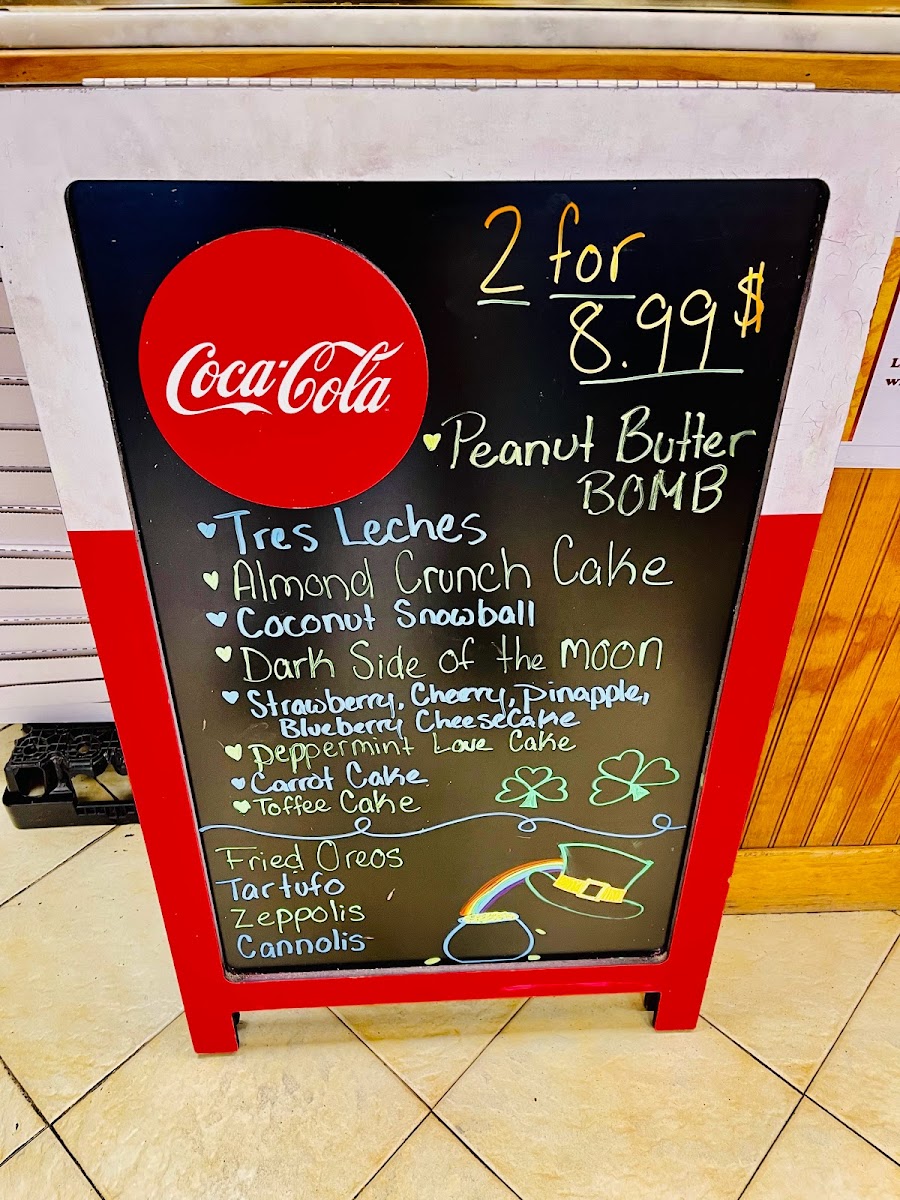 Coca-Cola
2 for
8.99$
Peanut Butter
BOMB
Tres Leches
Almond Crunch Cake
Coconut Snowball
Dark Side of the moon
Strawberry, Cherry, Pinapple,
Blueberry Cheesecake
Peppermint Love Cake
Carrot Cake
Toffee Cake
Fried Oreos
Tartufo
Zeppolis
Cannolis